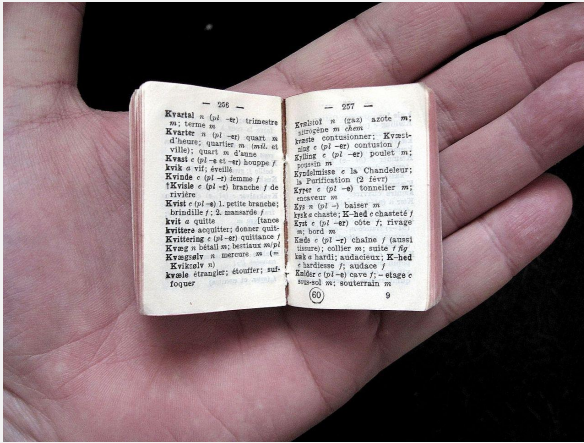 — 256 —
Kvartal n (pl -er) trimestre
m; terme m
Kvarter n (pl -er) quart m
d'heure; quartier m (mil. et
ville); quart m d'aune
Kvast c (pl -e et -er) houppe f
kvik a vif; éveillé
Kvinde c (pl -r) femme f
†Kvisle c (pl -r) branche f de
rivière
Kvist c (pl -e) 1. petite branche;
brindille f; 2. mansarde f
kvit a quitte [tance
kvittere acquitter; donner quit-
Kvittering c (pl -er) quittance f
Kvæg n bétail m; bestiaux m/pl
Kvægsølv n mercure m (=
Kviksølv n)
kvæle étrangler; étouffer; suf-
foquer
— 257 —
Kvælstof n (gaz) azote m;
nitrogène m chem
kvæste contusionner; Kvæst-
ning c (pl -er) contusion f
Kylling c (pl -er) poulet m;
poussin m
Kyndelmisse c la Chandeleur;
la Purification (2 févr)
Kyper c (pl -e) tonnelier m;
encaveur m
Kys n (pl -) baiser m
kysk a chaste; K-hed c chasteté f
Kyst c (pl -er) côte f; rivage
m; bord m
Kæde c (pl -r) chaîne f (aussi
tissure); collier m; suite f fig
kæk a hardi; audacieux; K-hed
c hardiesse f; audace f
Kælder c (pl -e) cave f; – etage c
sous-sol m; souterrain m
60 9